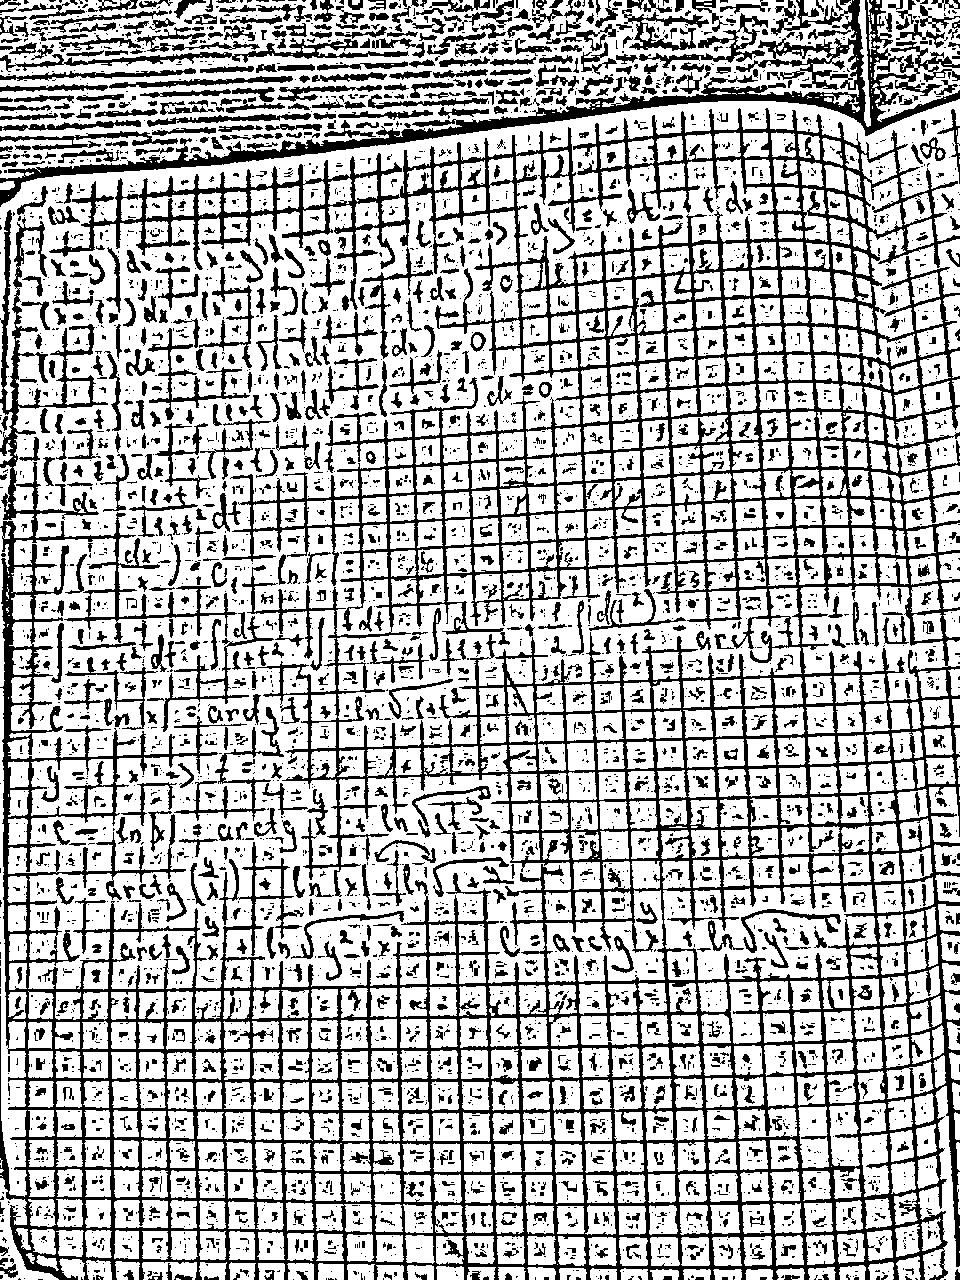 (x - y) dx + (x + y) dy = 0; y = t · x => dy = x dt + t dx
(x - tx) dx + (x + tx)(x dt + t dx) = 0
(1 - t) dx + (1 + t)(x dt + t dx) = 0
(1 - t) dx + (1 + t) x dt + (t + t²) dx = 0
(1 + t²) dx + (1 + t) x dt = 0
- dx/x = (1 + t)/(1 + t²) dt
∫(- dx/x) = C - ln|x|
∫ (1 + t)/(1 + t²) dt = ∫ dt/(1 + t²) + ∫ t dt/(1 + t²) = ∫ dt/(1 + t²) + 1/2 ∫ d(t²)/(1 + t²) = arctg t + 1/2 ln|1 + t
C - ln|x| = arctg t + ln√(1 + t²)
y = t · x => t = y/x
C - ln|x| = arctg y/x + ln√(1 + y²/x²)
C = arctg (y/x) + ln|x| + ln√(1 + y²/x²)
C = arctg y/x + ln√(y² + x²) C = arctg y/x + ln√(y² + x²)